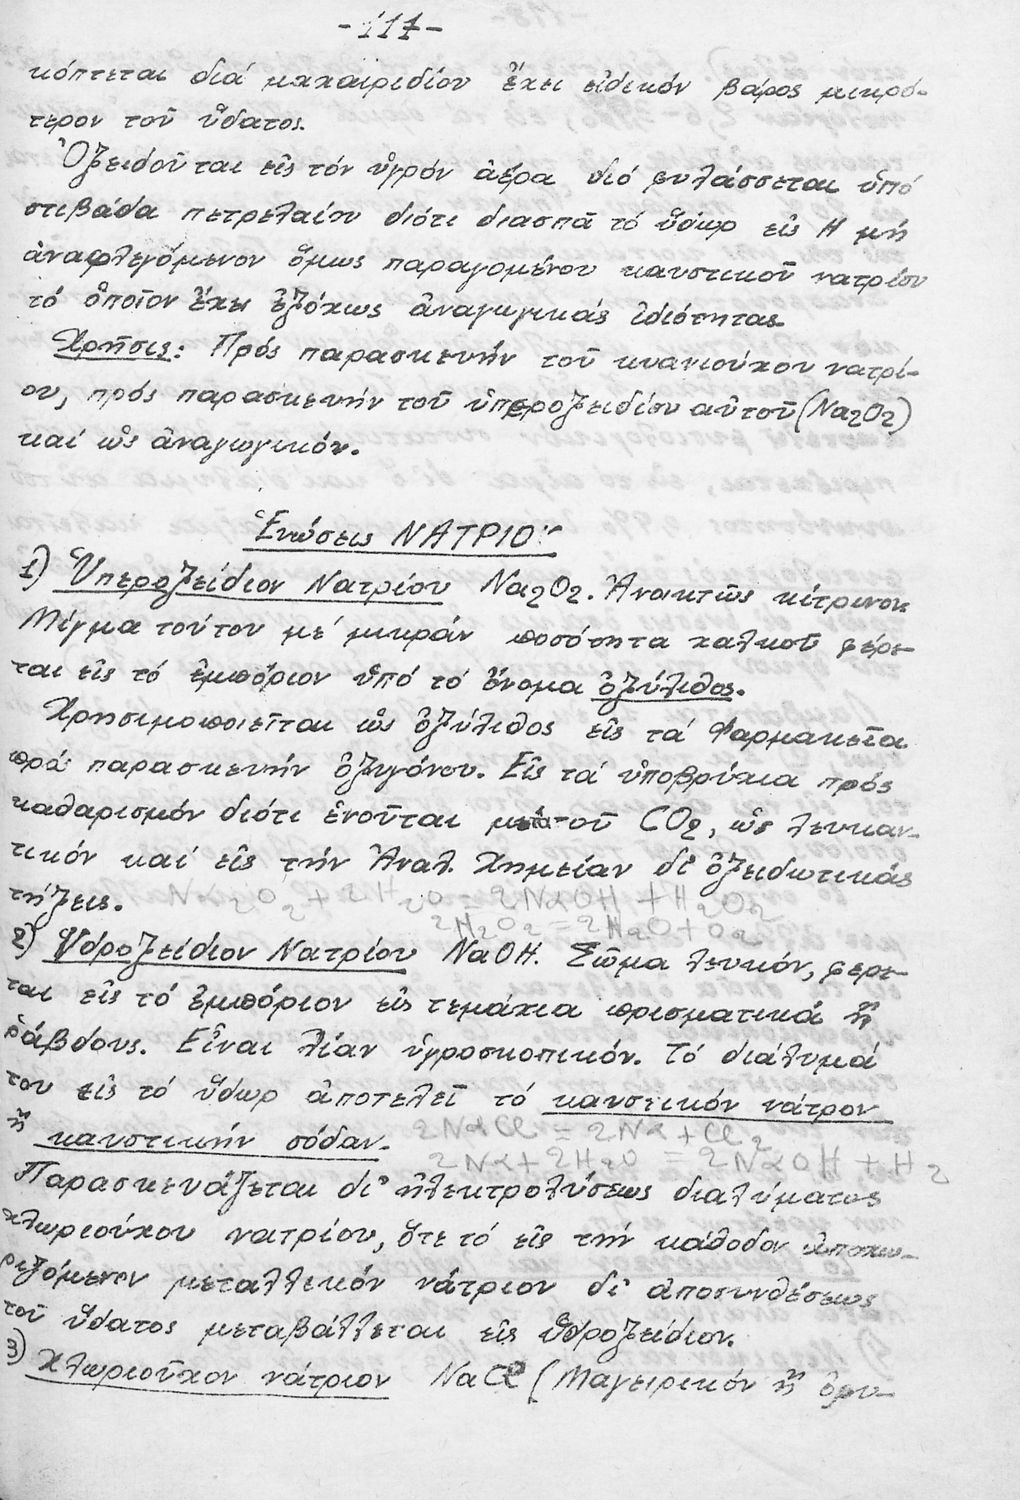 -117-
κόπτεται διά μαχαιριδίου ἔχει εἰδικόν βάρος μικρό-
τερον τοῦ ὕδατος.
Ὀξειδοῦται εἰς τόν ὑγρόν ἀέρα διό φυλάσσεται ὑπό
στιβάδα πετρελαίου διότι διασπᾶ τό ὕδωρ εἰς Η μή
ἀναφλεγόμενον ὅμως παραγομένου καυστικοῦ νατρίου
τό ὁποῖον ἔχει ἐξόχως ἀναγωγικάς ἰδιότητας.
Χρῆσις: Πρός παρασκευήν τοῦ κυανιούχου νατρί-
ου, πρός παρασκευήν τοῦ ὑπεροξειδίου αὐτοῦ (Na2O2)
καί ὡς ἀναγωγικόν.
Ἑνώσεις ΝΑΤΡΙΟΥ
1) Ὑπεροξείδιον Νατρίου Na2O2. Ἀνοικτῶς κίτρινον
Μῖγμα τούτου μέ μικράν ποσότητα χαλκοῦ φέρε-
ται εἰς τό ἐμπόριον ὑπό τό ὄνομα ὀξύλιθος.
Χρησιμοποιεῖται ὡς ὀξύλιθος εἰς τά Φαρμακεῖα
πρός παρασκευήν ὀξυγόνου. Εἰς τά ὑποβρύχια πρός
καθαρισμόν διότι ἑνοῦται μετά τοῦ CO2, ὡς λευκαν-
τικόν καί εἰς τήν Ἀναλ. Χημείαν δι' ὀξειδωτικάς
τήξεις.
Nα2O2 + 2H2O = 2NαOH + H2O2
2H2O2 = 2H2O + O2
2) Ὑδροξείδιον Νατρίου NaOH. Σῶμα λευκόν, φέρε-
ται εἰς τό ἐμπόριον εἰς τεμάχια πρισματικά ἤ
ράβδους. Εἶναι λίαν ὑγροσκοπικόν. Τό διάλυμά
του εἰς τό ὕδωρ ἀποτελεῖ τό καυστικόν νάτρον
ἤ καυστικήν σόδαν.
2NαCl = 2Nα + Cl2
2Nα + 2H2O = 2NαOH + H2
Παρασκευάζεται δι' ἠλεκτρολύσεως διαλύματος
χλωριούχου νατρίου, ὅτε τό εἰς τήν κάθοδον ἀποχω-
ριζόμενον μεταλλικόν νάτριον δι' ἀποσυνθέσεως
τοῦ ὕδατος μεταβάλλεται εἰς ὑδροξείδιον.
3) Χλωριοῦχον νάτριον NaCl (Μαγειρικόν ἤ ὀρυ-